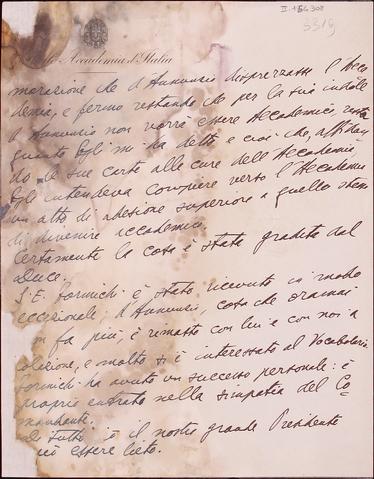 5319
Reale Accademia d'Italia
morazione che d'Annunzio disprezzasse l'Acca
demia, e fermo restando che per la sua indole
d'Annunzio non vorrà essere Accademico, resta
quanto Egli mi ha detto e cioè che, affidan
do le sue carte alle cure dell'Accademia,
Egli intendeva compiere verso l'Accademia
un atto di adesione superiore a quello stesso
di divenire accademico.
Certamente la cosa è stata gradita dal
Duce.
S. E. Formichi è stato ricevuto in modo
eccezionale; d'Annunzio, cosa che oramai
non fa più, è rimasto con lui e con noi a
colazione, e molto si è interessato al Vocabolario.
Formichi ha avuto un successo personale: è
proprio entrato nella simpatia del Co
mandante.
Di tutto ciò il nostro grande Presidente
può essere lieto.